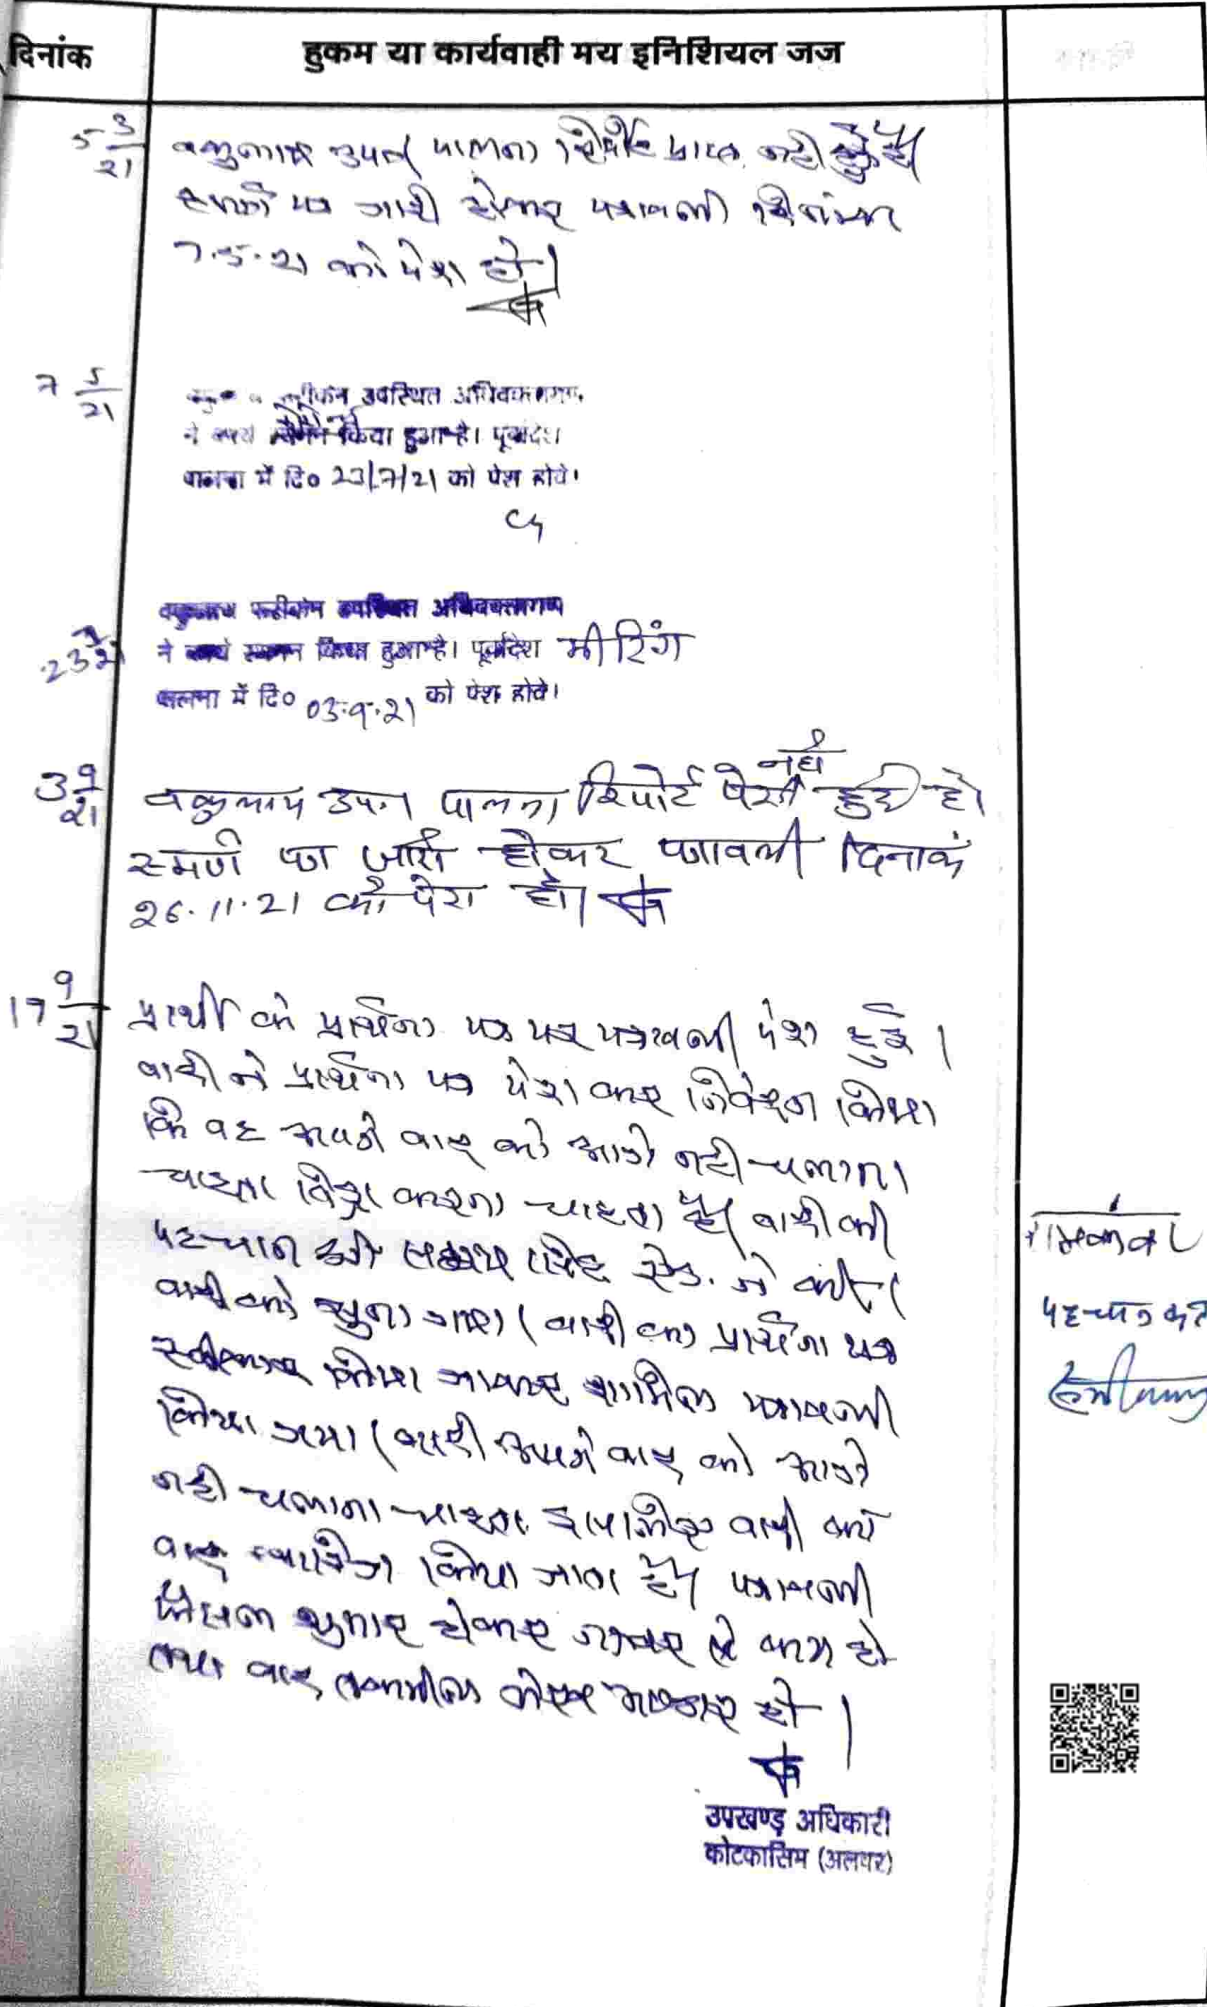 दिनांक
हुकम या कार्यवाही मय इनिशियल जज
5 3/21
वकुलाय उप0 पालना रिपोर्ट प्राप्त नही हुई है
पत्र जारी होकर पत्रावली दिनांक
7.5.21 को पेश हो।
7 5/21
उपस्थित अधिवक्तागण
ने कार्य किया हुआ है। पूर्वादेश
पालना में दि० 23/7/21 को पेश होवे।
23 7/21
वकुलाय फरीकेन उपस्थित अधिवक्तागण
ने कार्य स्थगन किया हुआ है। पूर्वादेश मीटिंग
पालना में दि० 03.9.21 को पेश होवे।
3 9/21
नही
वकुलाय उप0 पालना रिपोर्ट पेश हुई है।
स्मर्ण पत्र जारी होकर पत्रावली दिनाकं
26.11.21 को पेश हो।
17 9/21
प्रार्थी के प्रार्थना पत्र पर पत्रावली पेश हुई।
वादी ने प्रार्थना पत्र पेश कर निवेदन किया
कि वह अपने वाद को आगे नही चलाना
चाहता विड्रा करना चाहता है। वादी की
पहचान श्री सिंह एड. ने की।
वादी को सुना गया। वादी का प्रार्थना पत्र
स्वीकार किया जाकर शामिल पत्रावली
किया गया। वादी अपने वाद को आगे
नही चलाना चाहता इसलिए वादी का
वाद खारिज किया जाता है। पत्रावली
फैसल शुमार होकर नम्बर से कम हो
तथा वाद तकमील हो।
पहचान कर्ता
उपखण्ड अधिकारी
कोटकासिम (अलवर)